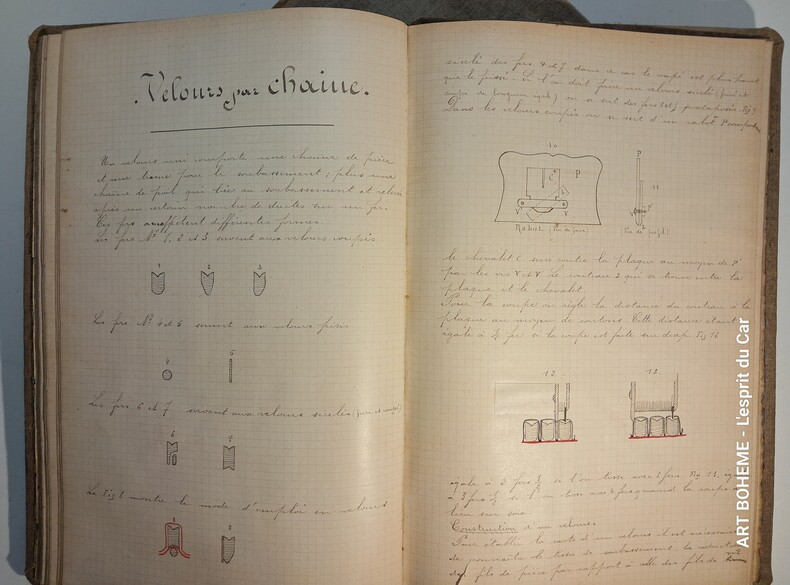 Velours par chaîne.
Un velours uni comporte une chaîne de pièce
et une trame pour le soubassement ; plus une
chaîne de poil qui lie au soubassement et relève
après un certain nombre de duites sur un fer.
Ces fers affectent différentes formes.
Les fers Nº 1, 2 et 3 servent aux velours coupés
1 2 3
Les fers Nº 4 et 5 servent aux velours frisés
4 5
Les fers 6 et 7 servent aux velours ciselés (frisé et coupé)
6 7
La Fig 8 montre le mode d'emploi en velours
8 9
ciselé des fers 6 et 7 dans ce cas le coupé est plus haut
que le frisé. Si l'on doit faire un velours ciselé (frisé et
coupé de longueur égale) on se sert des fers juxtaposés Fig 9
Dans les velours coupés on se sert d'un rabot
10
P C
V V
Rabot (Vu de face)
P
11
(Vu de profil)
le chevalet C serre contre la plaque au moyen de P
par les vis V et V. Le couteau qui se trouve entre la
plaque et le chevalet.
Pour la coupe on règle la distance du couteau à la
plaque au moyen de cartons. Cette distance étant
égale à ½ fer si la coupe est faite sur drap Fig 12
12 13
égale à 2 fers ½ si l'on tisse avec 3 fers Fig 13,
à 3 fers ½ si l'on tisse avec 4 fers quand la coupe
lieu sur soie.
Construction d'un velours.
Pour établir la carte d'un velours il est nécessaire
de connaître le tissu de soubassement, la réduction
des fils de pièce par rapport à celle des fils de
ART BOHEME - L'esprit du Car